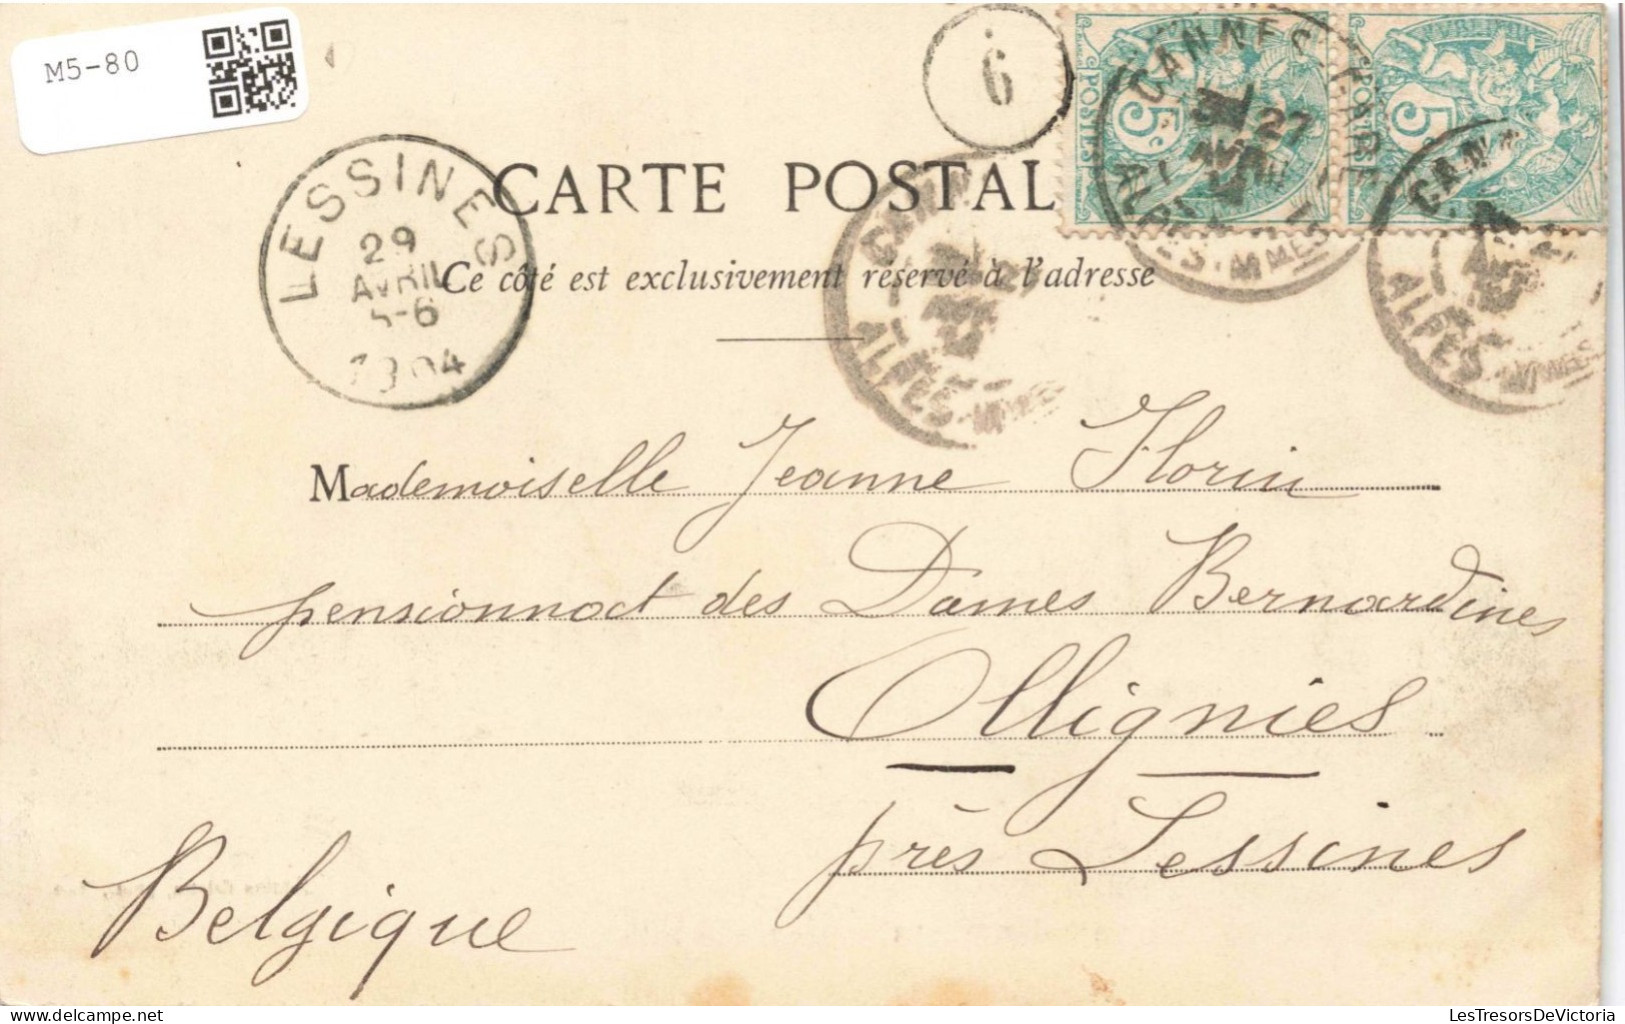 M5-80
6
CARTE POSTALE
Ce côté est exclusivement réservé à l'adresse
LESSINES
29
AVRIL
5-6
1904
5c
POSTES
5
CANNES
27
AVRIL
ALPES-MMES
ALPES-MMES
ALPES-MMES
Mademoiselle Jeanne Florin
pensionnat des Dames Bernardines
Ollignies
près Lessines
Belgique
LesTresorsDeVictoria